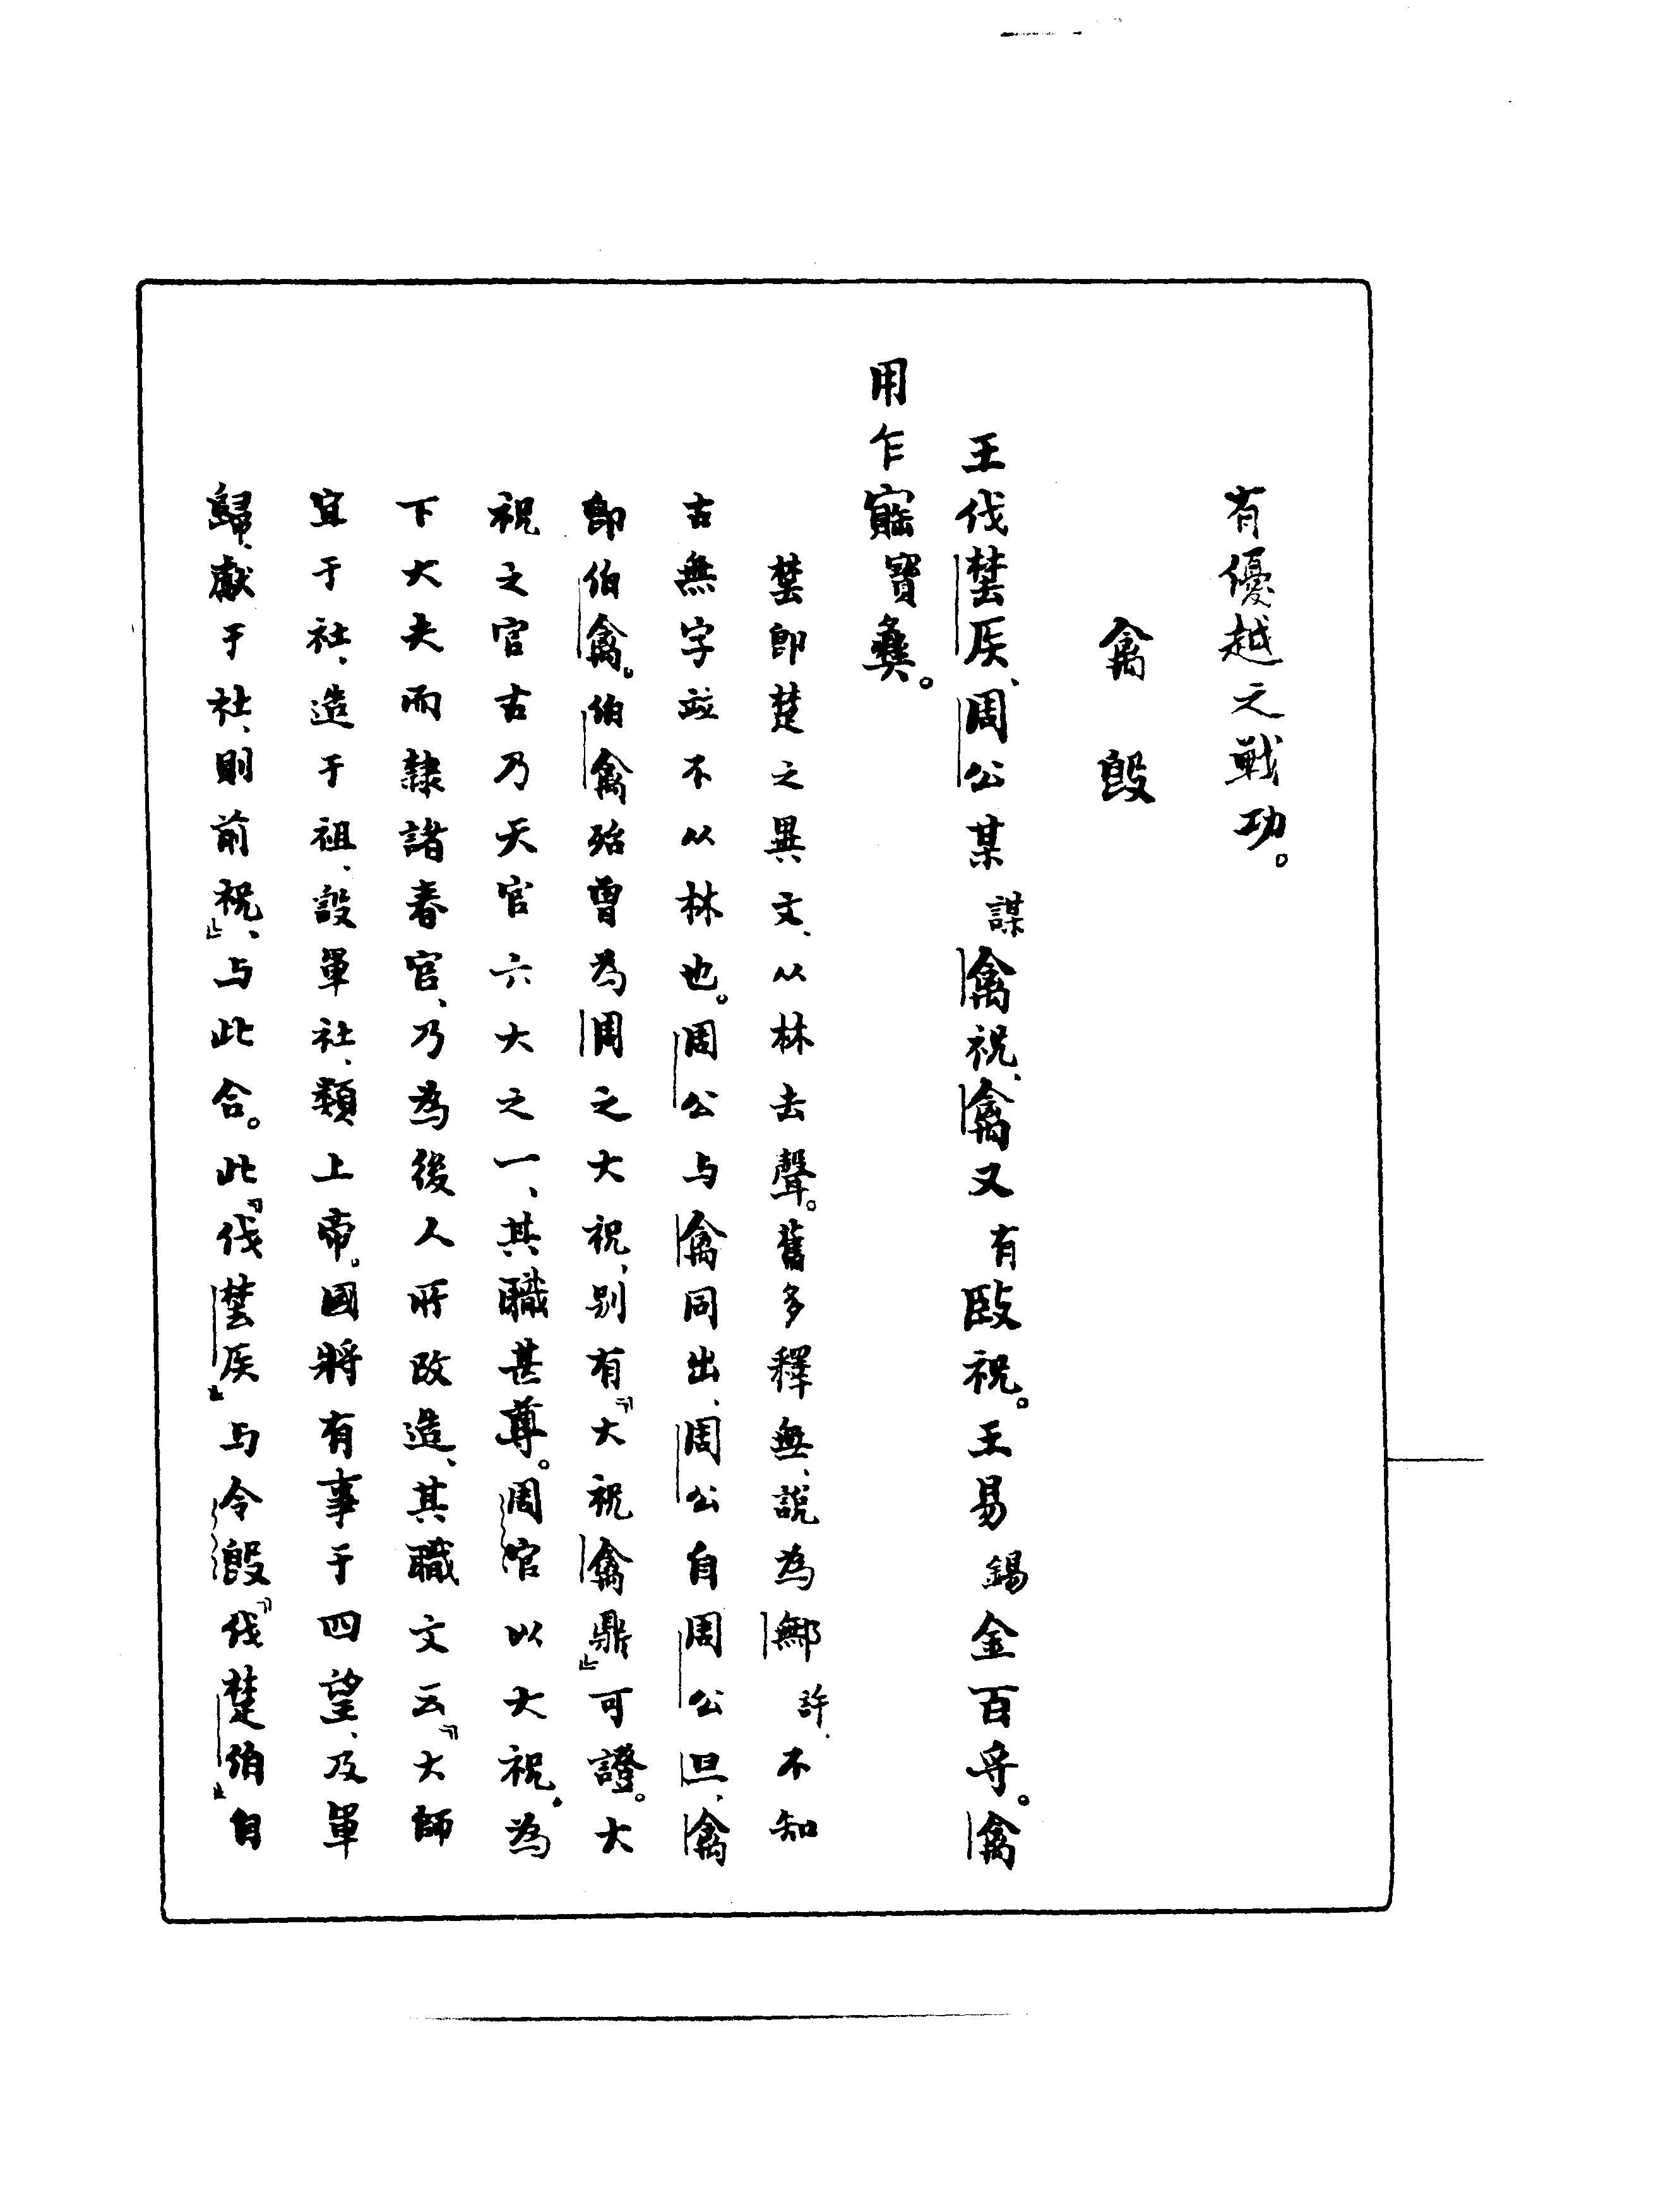 有優越之戰功。
禽𣪘
王伐𡐨𥎦、周公某謀禽祝、禽又有𢽚祝。王易錫金百寽。禽
用乍寶彝。
𡐨即楚之異文、从林去聲。舊多釋無、說為鄦許、不知
古無字竝不从林也。周公与禽同出、周公自周公旦、禽
即伯禽。伯禽殆曾為周之大祝、別有『大祝禽鼎』可證。大
祝之官古乃天官六大之一、其職甚尊。周官以大祝、為
下大夫而隸諸春官、乃為後人所改造、其職文云『大師
宜于社、造于祖、設軍社、類上帝。國將有事于四望、及軍
歸、獻于社、則前祝』、与此合。此『伐𡐨𥎦』与令𣪘『伐楚伯』自